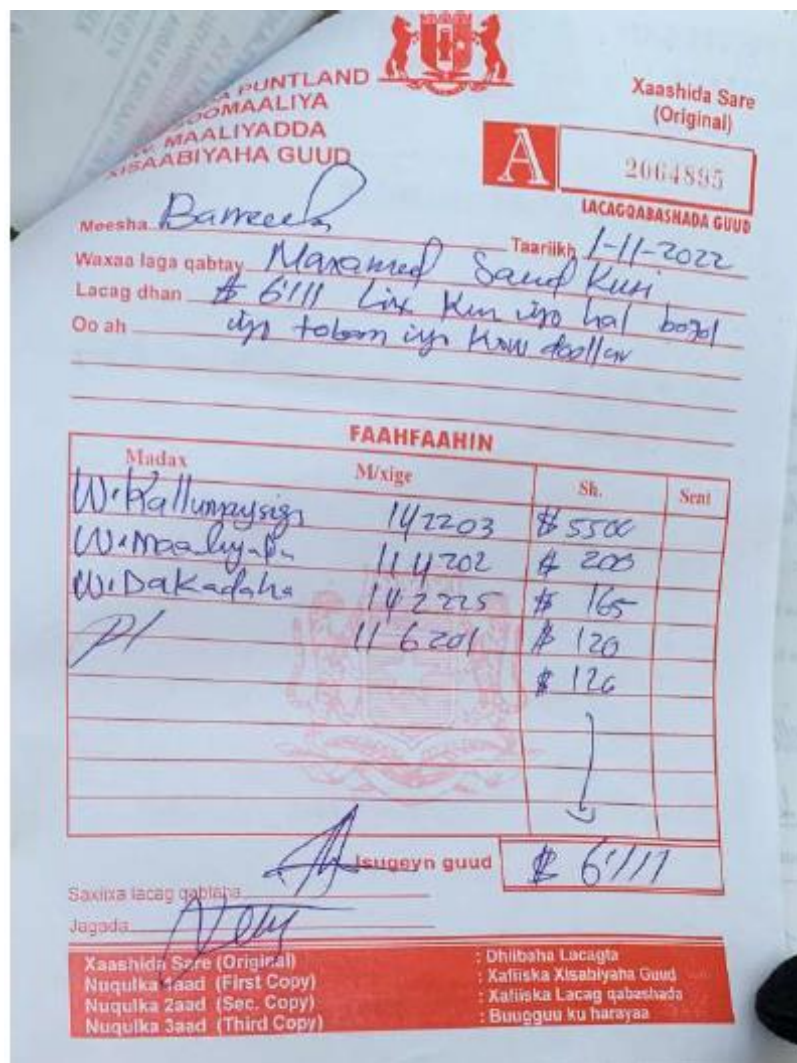 PUNTLAND
SOOMAALIYA
MAALIYADDA
XISAABIYAHA GUUD
Xaashida Sare
(Original)
A
2064895
LACAGQABASHADA GUUD
Meesha
Taariikh 1-11-2022
Waxaa laga qabtay Maxamed Saud Kusi
Lacag dhan $ 6111 Lix Kun iyo hal boqol
Oo ah iyo toban iyo kow doollar
FAAHFAAHIN
Madax M/xige Sh. Sent
W. Kallumaysig 142203 $ 5500
W. Maaliyada 114202 $ 200
W. Dakadaha 142225 $ 165
116201 $ 120
$ 126
Isugeyn guud $ 6111
Saxiixa lacag qabtaha
Jagada
Xaashida Sare (Original) : Dhiibaha Lacagta
Nuqulka 1aad (First Copy) : Xafiiska Xisabiyaha Guud
Nuqulka 2aad (Sec. Copy) : Xafiiska Lacag qabashada
Nuqulka 3aad (Third Copy) : Buugguu ku harayaa